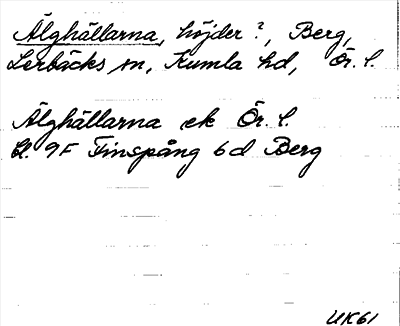 Älghällarna, höjder?, Berg,
Lerbäcks sn, Kumla hd, Ör. l.
Älghällarna ek Ör. l.
Bl. 9F Finspång 6d Berg
UK61